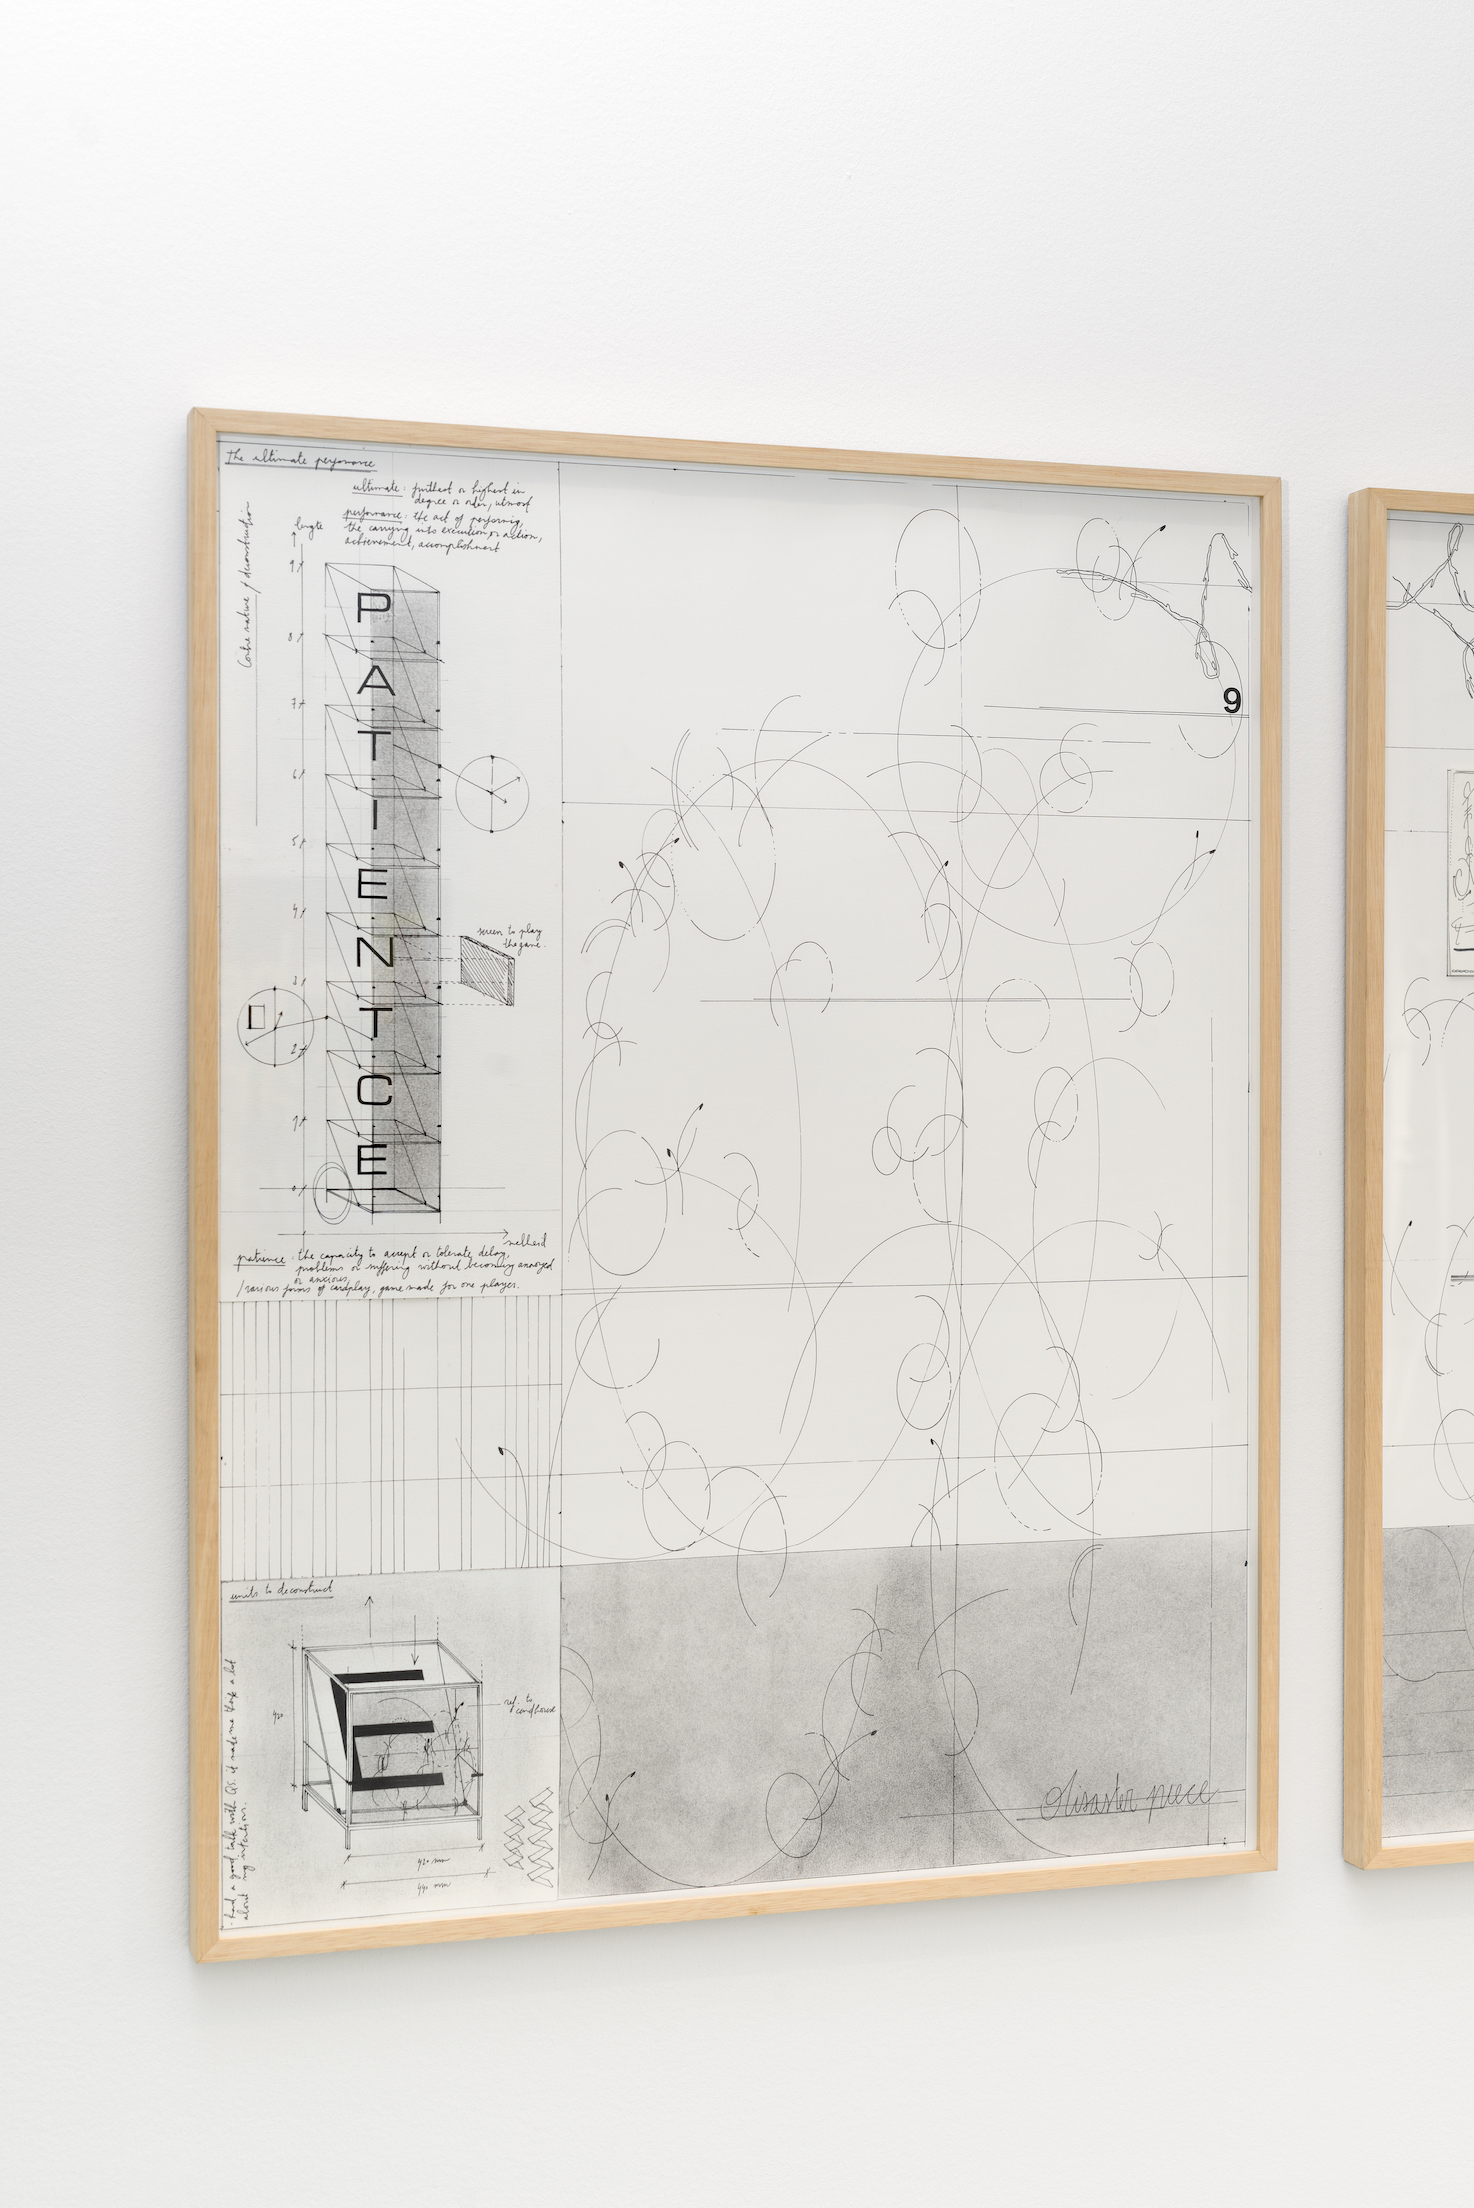 the ultimate perfomance
ultimate: furthest or highest in
degree or order, utmost
perfomance: the act of performing,
the carrying into execution or action,
achievement, accomplishment
Contre nature / deconstruction
lengte
9
8
7
6
5
4
3
2
1
0
P
A
T
I
E
N
T
C
E
screen to play
the game.
snelheid
patience: the capacity to accept or tolerate delay,
problems or suffering without becoming annoyed
or anxious,
/various forms of cardplay, game made for one player.
9
units to deconstruct
ref. to
cardhouse
420 mm
440 mm
had a good talk with QS. it made me think a lot
about my intentions.
disaster piece